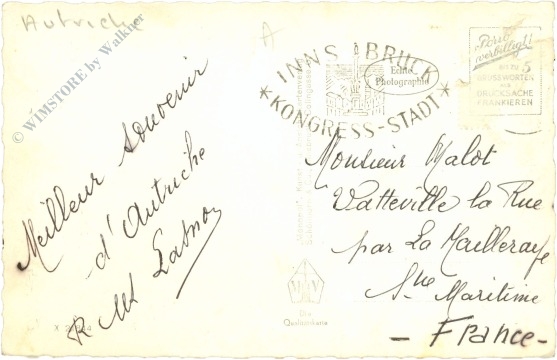 Autriche
A
© WIMSTORE by Walkner
Meilleur souvenir
d'Autriche
INNSBRUCK
Echte
Photographie
* KONGRESS-STADT *
Porto
verbilligt!
BIS ZU 5
GRUSSWORTEN
ALS
DRUCKSACHE
FRANKIEREN
Monsieur Malot
Vatteville la Rue
par La Mailleraye
Sne Maritime
- France -
Die
Qualitätskarte